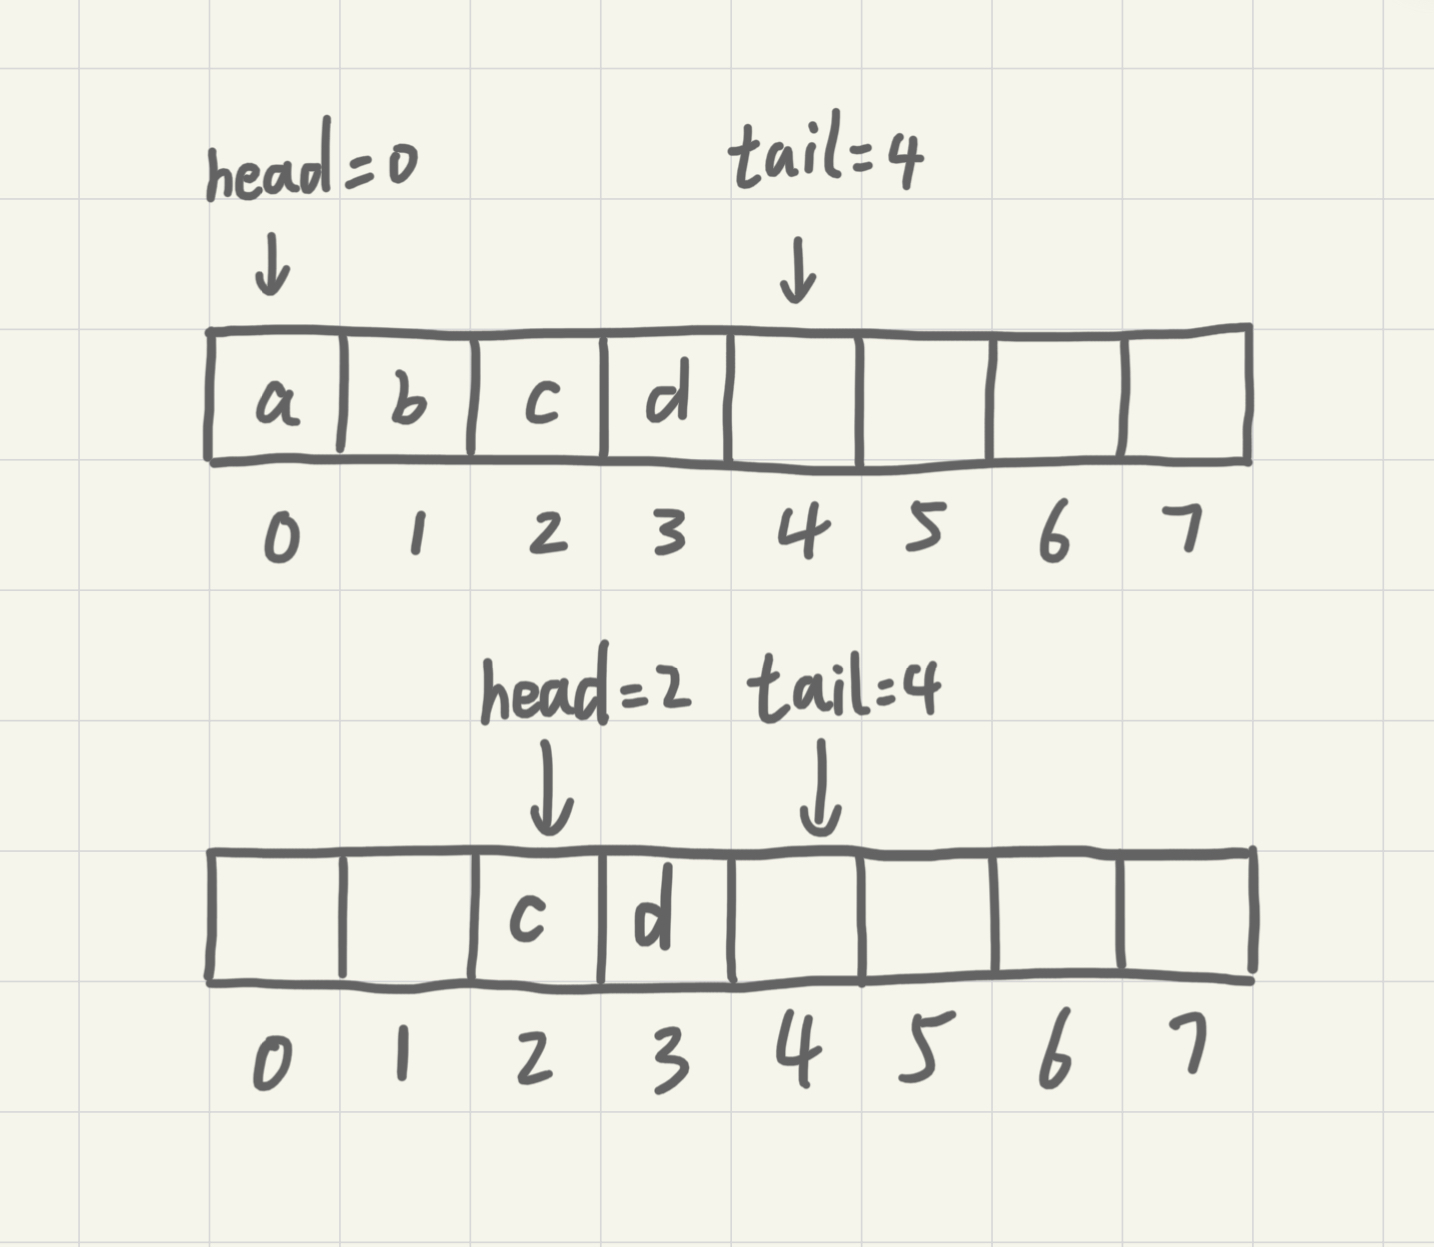 head=0 tail=4
a b c d
0 1 2 3 4 5 6 7
head=2 tail=4
c d
0 1 2 3 4 5 6 7